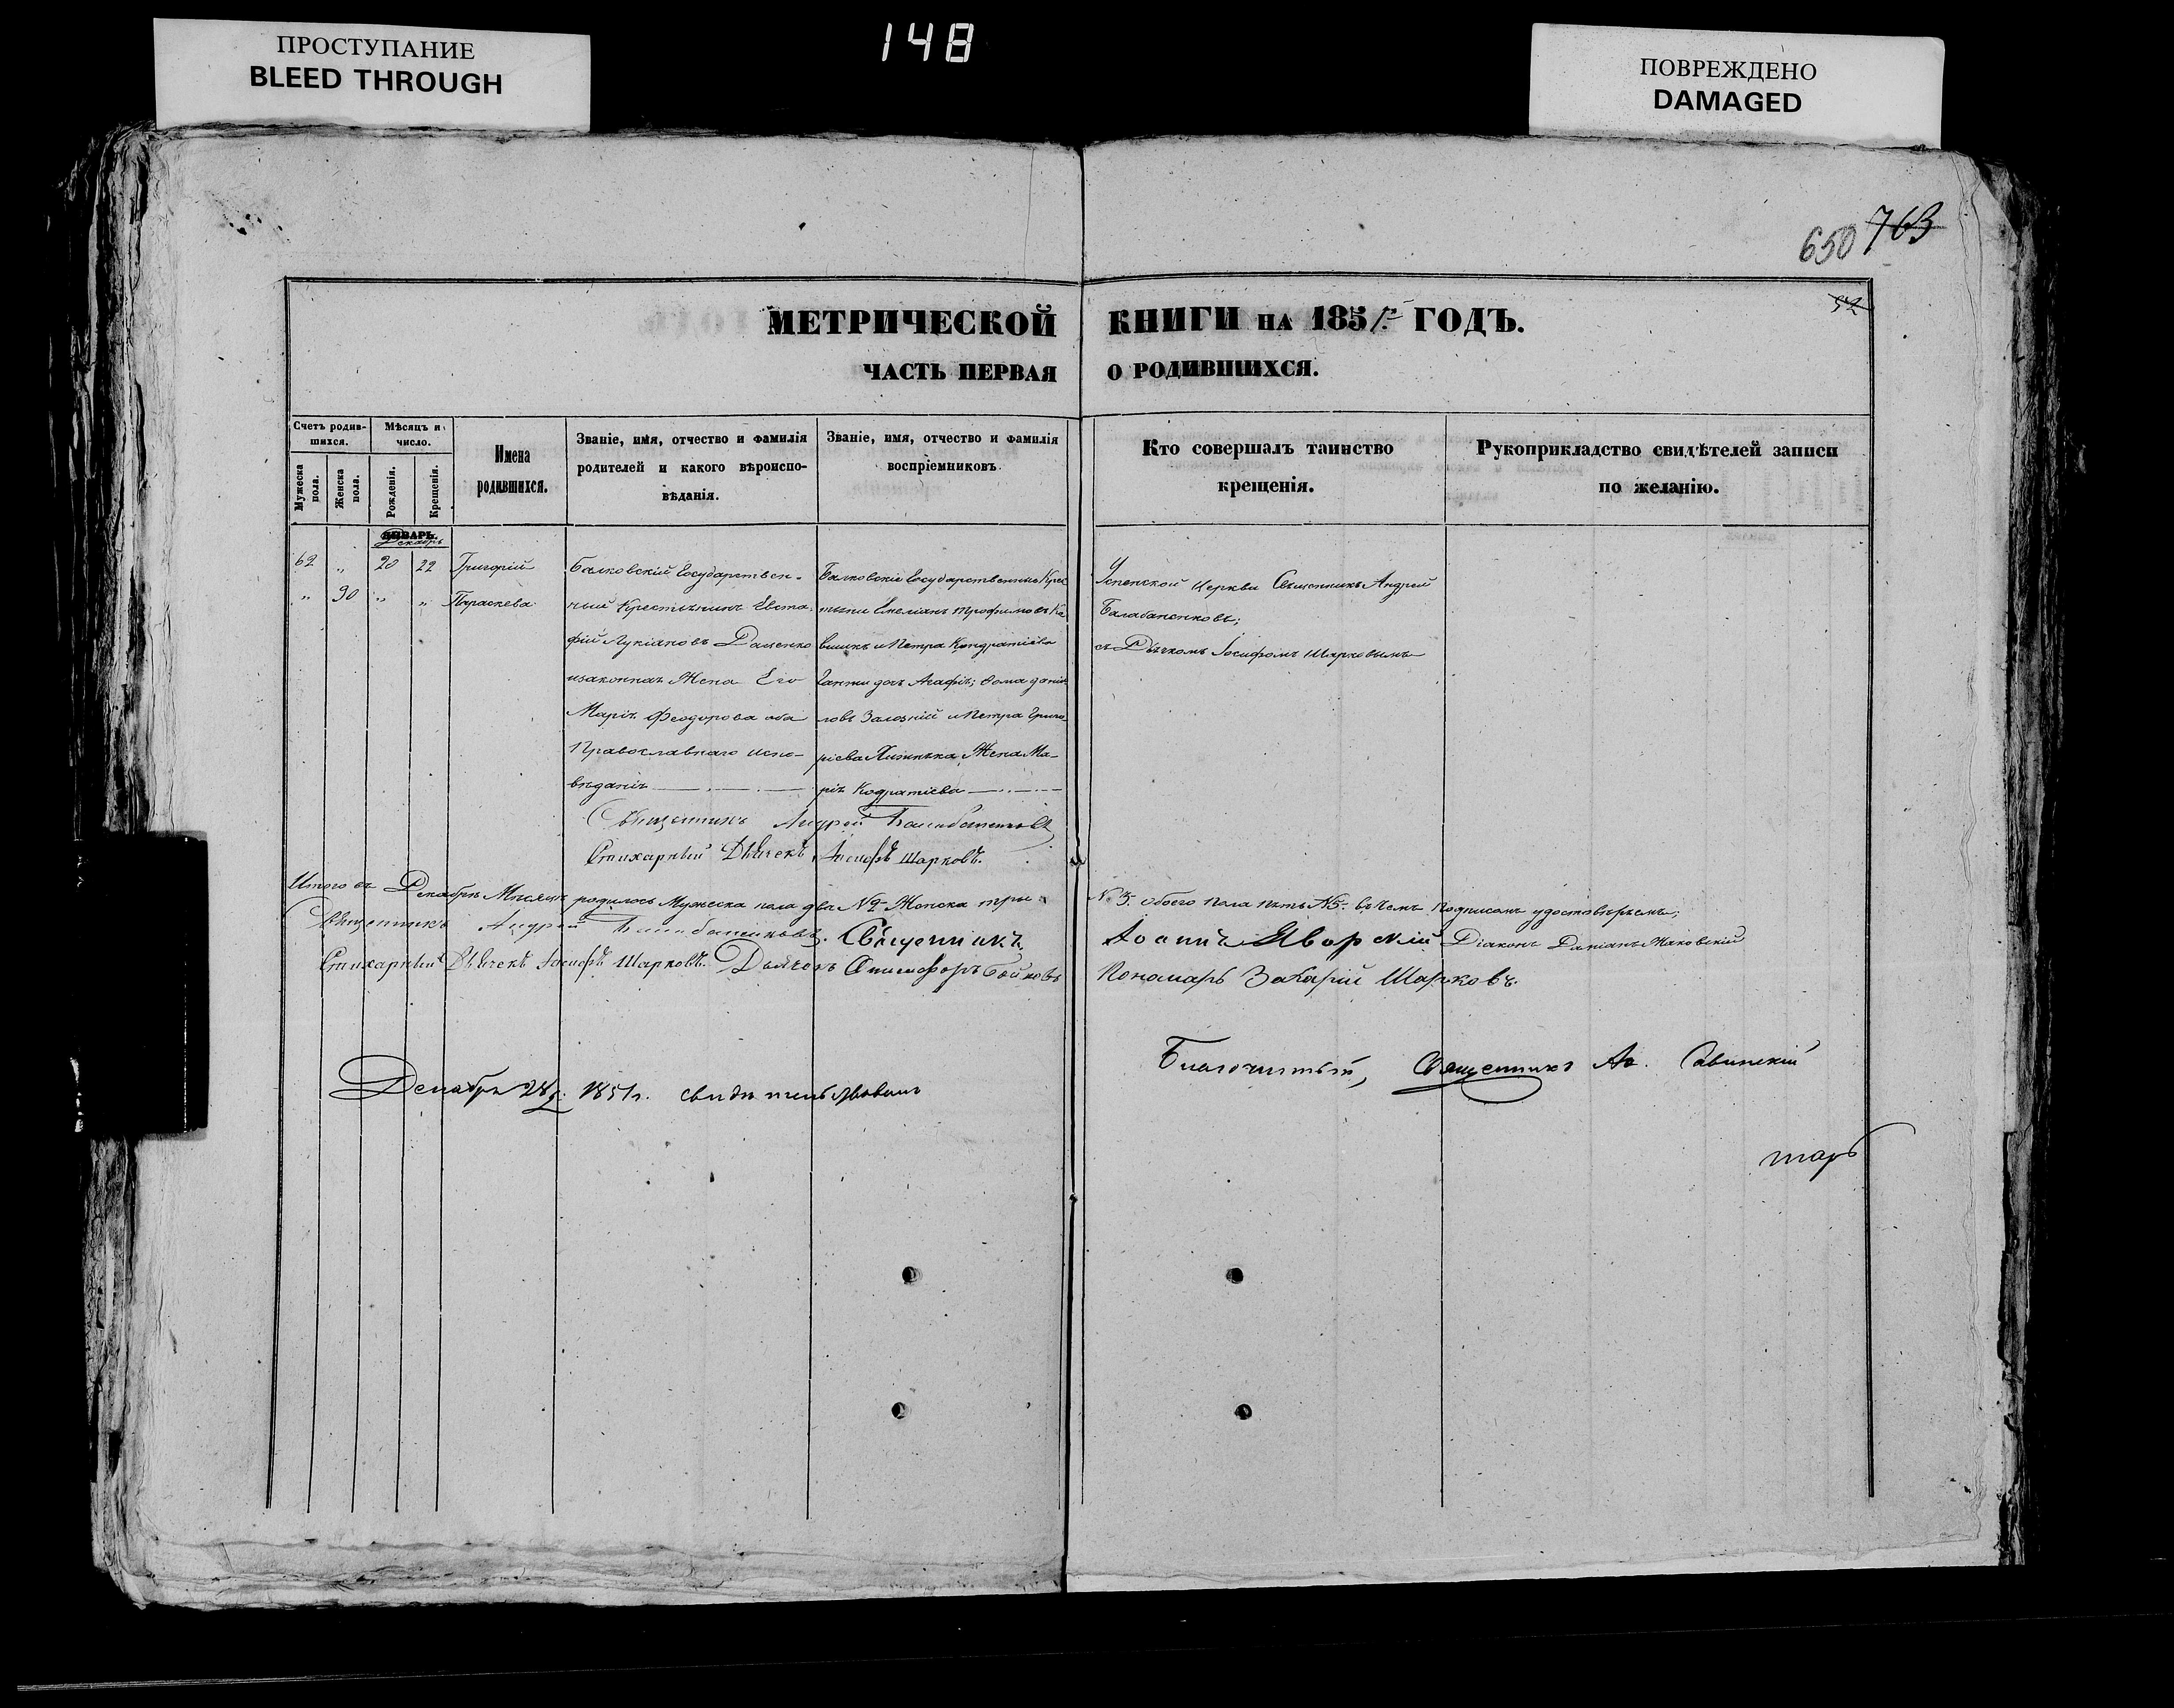 ПРОСТУПАНИЕ
BLEED THROUGH
148
ПОВРЕЖДЕНО
DAMAGED
650 763
52
МЕТРИЧЕСКОЙ КНИГИ НА 1851 ГОДЪ.
ЧАСТЬ ПЕРВАЯ О РОДИВШИХСЯ.
Счетъ родив-
шихся.
Мужеска пола.
Женска пола.
Мѣсяцъ и
число.
Рожденія.
Крещенія.
Имена
родившихся.
Званіе, имя, отчество и фамилія
родителей и какого вѣроиспо-
вѣданія.
Званіе, имя, отчество и фамилія
воспріемниковъ.
Кто совершалъ таинство
крещенія.
Рукоприкладство свидѣтелей записи
по желанію.
ЯНВАРЬ.
Декабрь
62 „ 20 22 Григорій
„ 90 „ „ Параскева
Балковскій Государствен-
ный Крестьянинъ Евста-
фій Лукіановъ Даценко
изаконная Жена Его
Марія Феодорова оба
Православнаго испо-
вѣданія
Балковскіе Государственные Крес
тьяни Емеліанъ Трофимовъ
и Петра Кондратіева
дочь Агафія; Фома Даніи
ловъ Залозній и Петра Григо
ріева Жена Ма-
рія Кодратіева
Успенской Церкви Священникъ Андрей
Балабаненковъ;
съ Дьячкомъ Іосифомъ Шарковымъ
Священникъ Андрей Балабаненковъ
Стихарный Дьячекъ Іосифъ Шарковъ.
Итого въ Декабрѣ Мѣсяцѣ родилось Мужеска пола два №2 Женска три
№3. обоего пола пять №5. въ чемъ подписомъ удостовѣряемъ;
Священникъ Андрей Балабаненковъ. Священникъ
Іоаннъ Яворскій Діаконъ Даміанъ Маковскій
Стихарный Дьячекъ Іосифъ Шарковъ. Дьячокъ Онисифоръ Бойковъ
Пономарь Захарій Шарковъ.
Декабря 28 1851г. свидѣтельствовалъ
Благочинный, Священникъ Савинскій
тарь